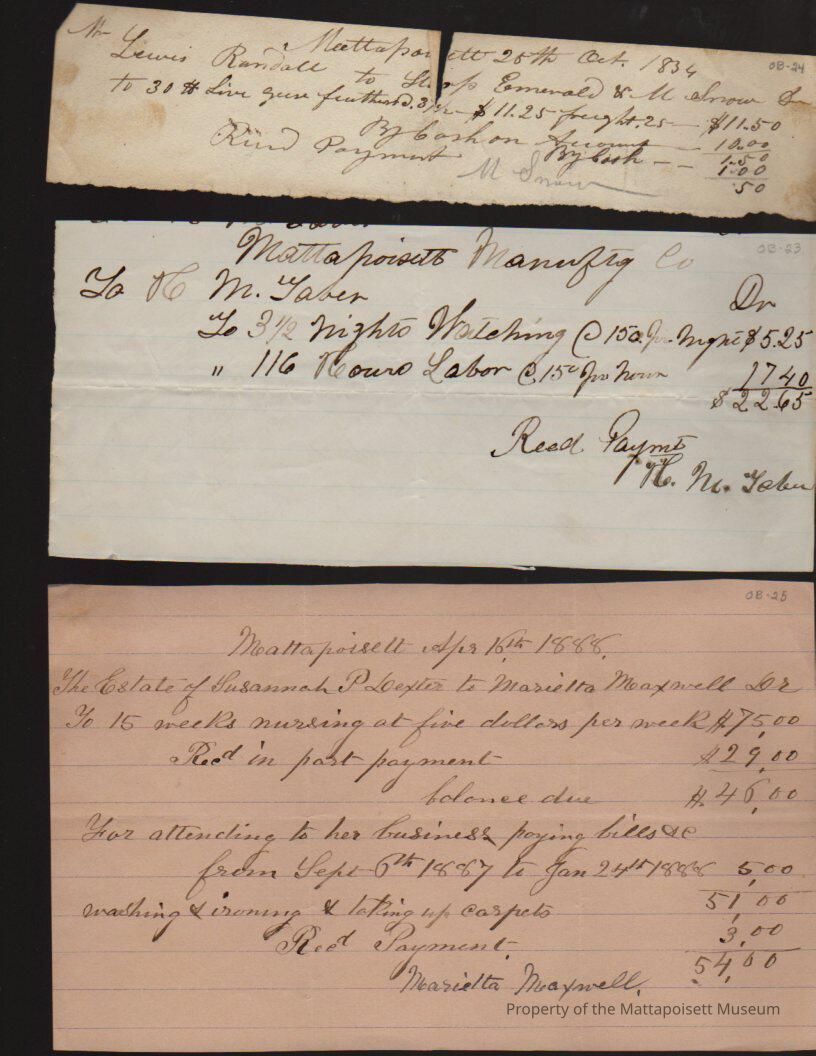 OB-24
Mattapoisett 25th Oct. 1834
Mr Lewis Randall to Sloop Emerald & M Snow Dr
to 30 # Live geese feathers $11.25 freight .25 — $11.50
By Cash on Account — 10.00
1.50
By Cash — — 1.00
.50
Rcvd Payment
M Snow
OB-23
Mattapoisett Manuftg Co
To H M. Taber Dr
To 3 1/2 Nights Watching @ 150 pr. Night $5.25
" 116 Hours Labor @ 15c pr hour 1740
$22.65
Recd Paymt
H. M. Taber
OB-25
Mattapoisett Apr 16th 1888.
The Estate of Susannah P Dexter to Marietta Maxwell Dr
To 15 weeks nursing at five dollars per week $75.00
Recd in part payment $29.00
balance due $46.00
For attending to her business, paying bills &c
from Sept 6th 1887 to Jan 24th 1888 5.00
51.00
washing & ironing & taking up carpets 3.00
Recd Payment. 54.00
Marietta Maxwell.
Property of the Mattapoisett Museum